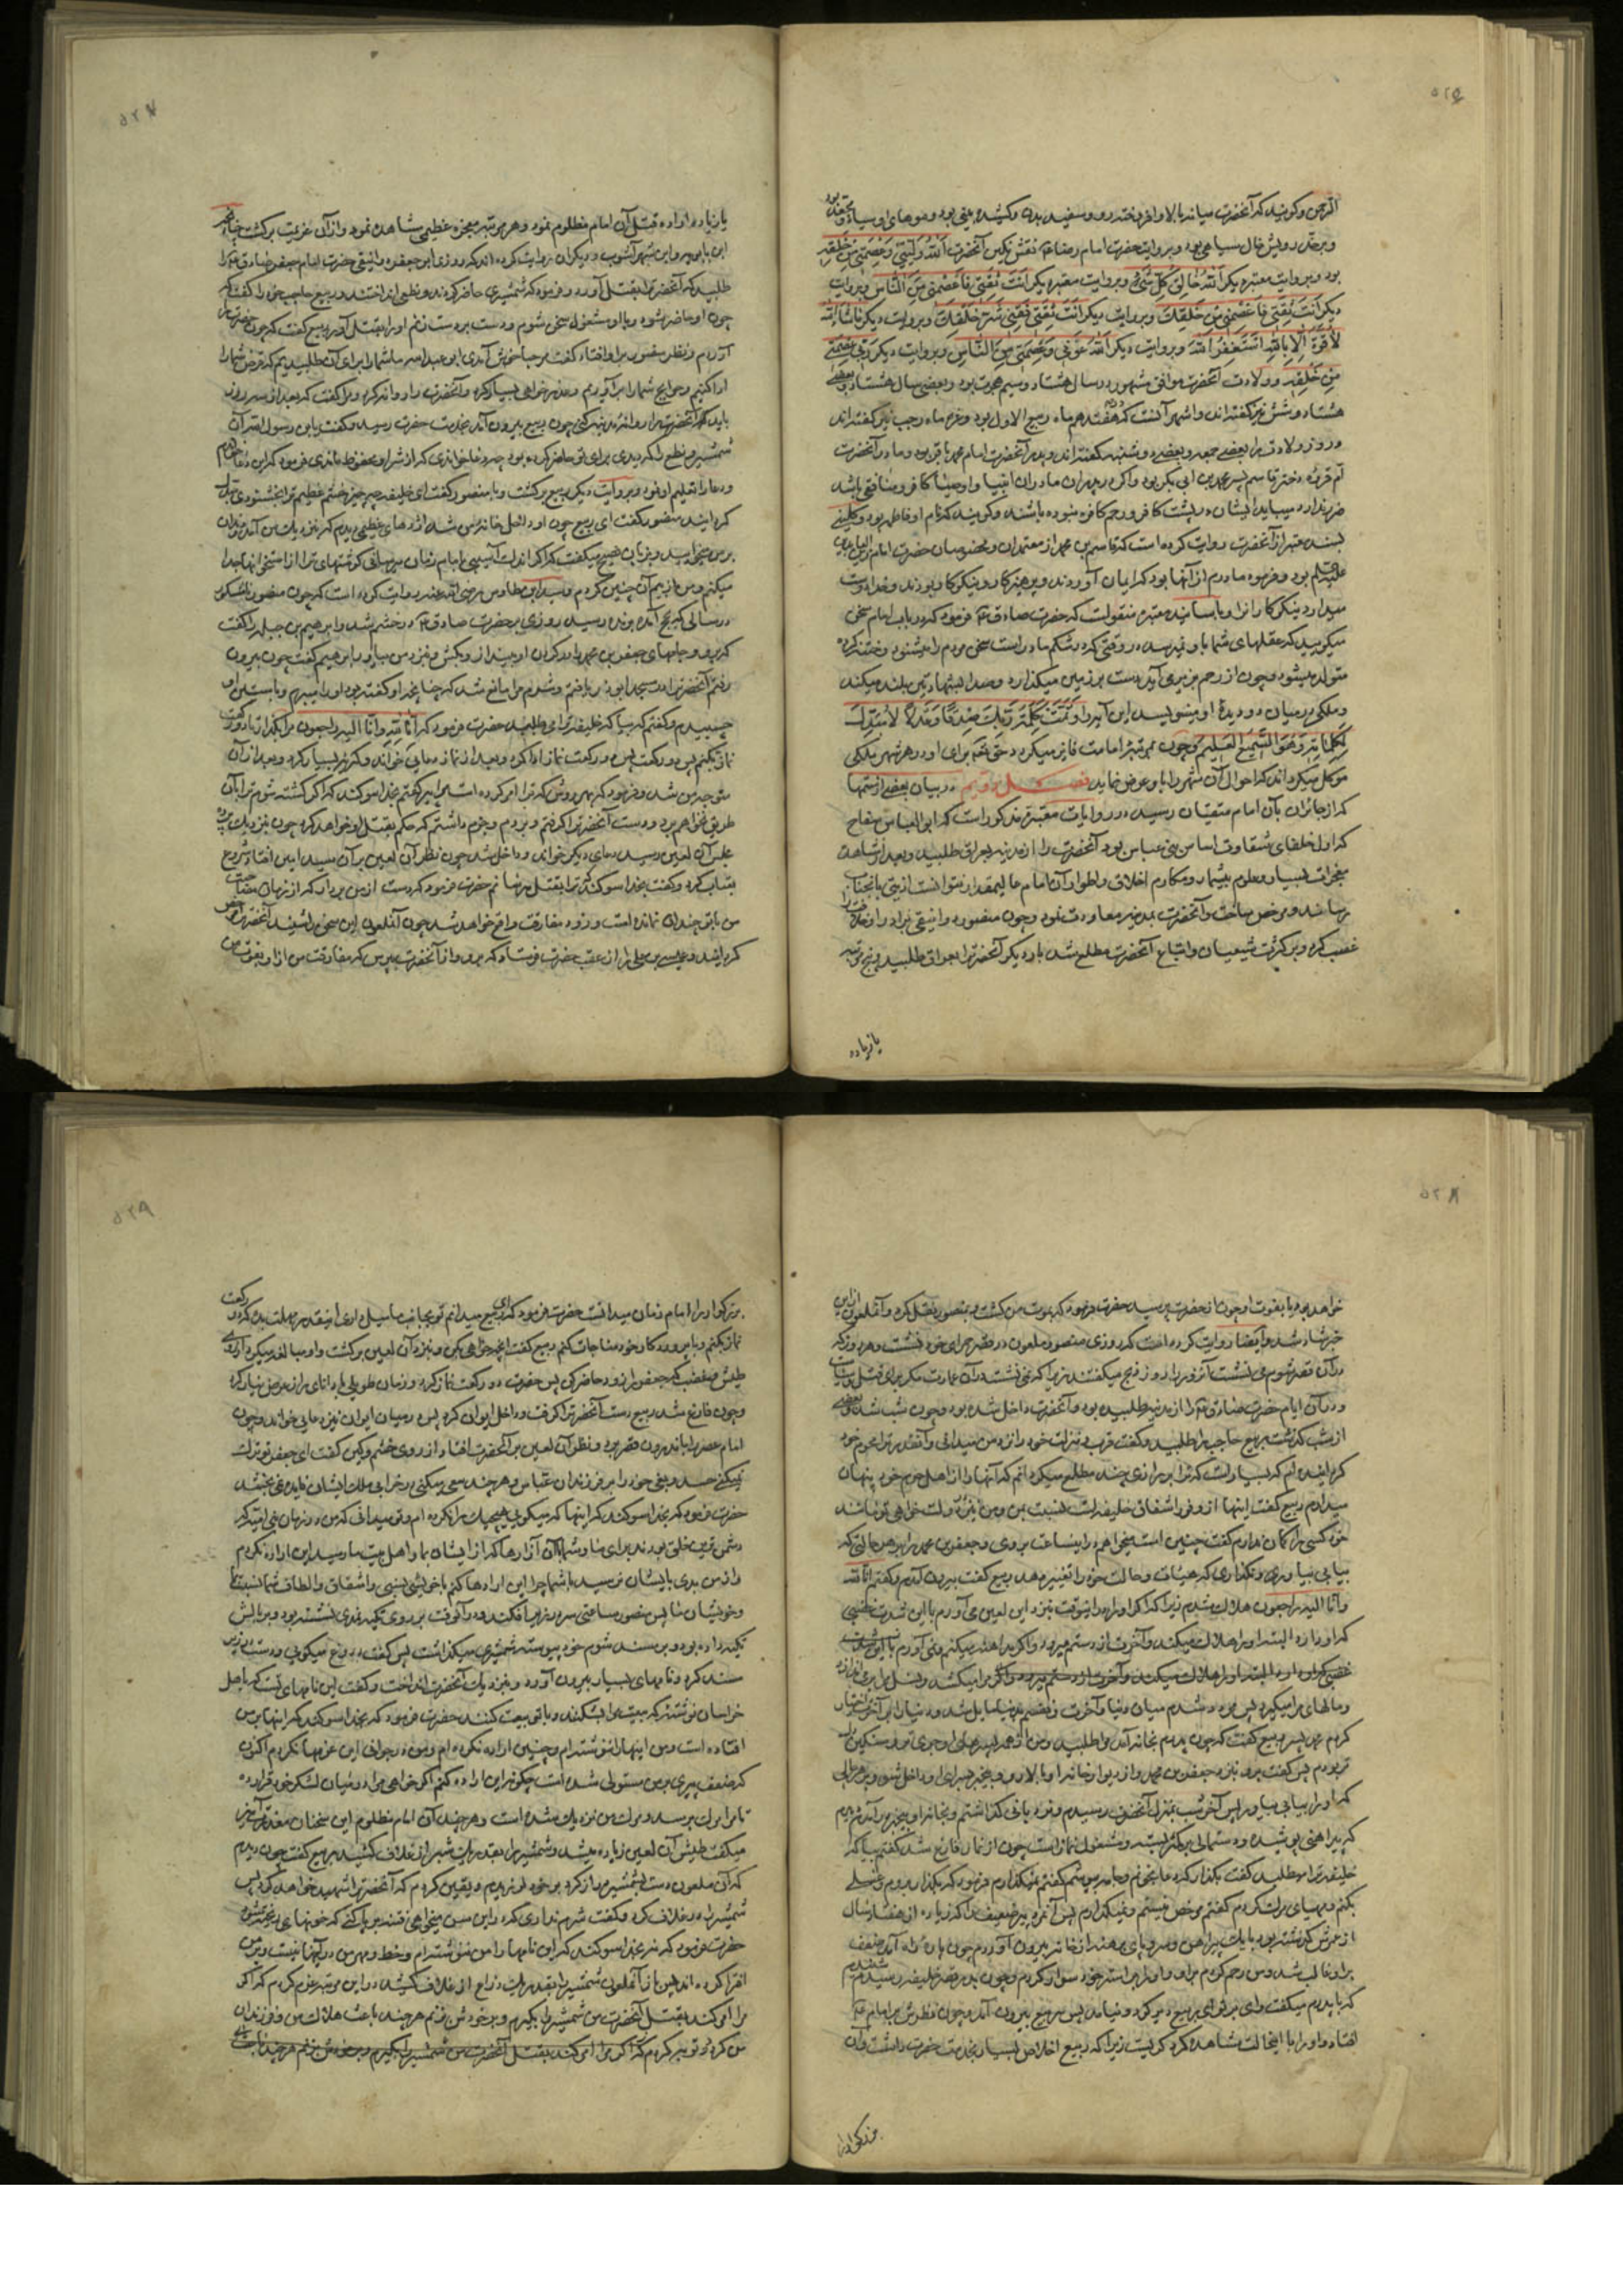 الرحمن وگویند که آنحضرت میانه بالا وافروخته رو وسفید بدن وکشیده بینی بود وموهای او سیاه ومجعد بود
وبر خدّ رویش خال سیاهی بود وبروایت حضرت امام رضا ع نقش نگین آنحضرت اَللّٰهُ وَلِیّی وَعِصْمَتی مِنْ خَلْقِه
بود وبروایت معتبر دیگر اَللّٰهُ خالِقُ کُلِّ شَیْءٍ وبروایت معتبر دیگر اَنْتَ ثِقَتی فَاعْصِمْنی مِنَ النّاسِ وبروایت
دیگر اَنْتَ ثِقَتی فَاعْصِمْنی مِنْ خَلْقِکَ وبروایت دیگر اَنْتَ ثِقَتی فَقِنی شَرَّ خَلْقِکَ وبروایت دیگر ماشاءَ اللّٰه
لاقُوَّةَ اِلّا بِاللّٰهِ اَسْتَغْفِرُ اللّٰهَ وبروایت دیگر اَللّٰهُ عَوْنی وَعِصْمَتی مِنَ النّاسِ وبروایت دیگر رَبّی عَصَمَنی
مِنْ خَلْقِه وولادت آنحضرت موافق مشهور در سال هشتاد وسیم هجرت بود وبعضی سال هشتاد وبعضی
هشتاد وشش نیز گفته‌اند واشهر آنست که در هفدهم ماه ربیع الاول بود وغره ماه رجب نیز گفته‌اند
وروز ولادت را بعضی جمعه وبعضی دوشنبه گفته‌اند وپدر آنحضرت امام محمد باقر بود ومادر آنحضرت
ام فروه دختر قاسم پسر محمد بن ابی بکر بود واگر در پدران مادران انبیا واوصیا کافر ومنافقی باشد
ضرر ندارد میباید ایشان در پشت کافر ورحم کافره نبوده باشند وگویند که نام او فاطمه بود وکلینی
بسند معتبر از آنحضرت روایت کرده است که قاسم بن محمد از معتمدان ومخصوصان حضرت امام زین العابدین
علیه السلم بود وفرمود مادرم از آنها بود که ایمان آوردند وپرهیزکار ونیکوکار بودند وخدا دوست
میدارد نیکوکاران را وباسانید معتبره منقولست که حضرت صادق ع فرمود که در باب امام سخن
میگویید که عقلهای شما باو نمیرسد در وقتی که در شکم مادر است سخن مردم را میشنود وختنه کرده
متولد میشود وچون از رحم بزیر می‌آید دست بر زمین میگذارد وصدا بشهادتین بلند میکند
وملکی در میان دو دیدهٔ او مینویسد این آیه را وَتَمَّتْ کَلِمَةُ رَبِّکَ صِدْقًا وَعَدْلًا لامُبَدِّلَ
لِکَلِماتِه وَهُوَ السَّمیعُ الْعَلیمُ وچون بمرتبه امامت فایز میگردد حق تعه برای او در هر شهر ملکی
موکل میگرداند که احوال آن شهر را باو عرض نماید فصل دویم در بیان بعضی از ستمها
که از جائران بآن امام متقیان رسید در روایات معتبره مذکور است که ابو العباس سفاح
که اول خلفای شقاوت اساس بنی عباس بود آنحضرت را از مدینه بعراق طلبید وبعد از مشاهده
معجزات بسیار وعلوم بیشمار ومکارم اخلاق واطوار آن امام عالیمقدار نتوانست اذیتی بآنجناب
برساند ومرخص ساخت وآنحضرت بمدینه معاودت نمود وچون منصور دوانیقی برادر او خلافت را
غصب کرد وبر کثرت شیعیان واتباع آنحضرت مطلع شد بار دیگر آنحضرت را بعراق طلبید وپنج مرتبه
یا زیاده
یا زیاده اراده قتل آن امام مظلوم نمود وهر مرتبه معجزه عظیمی مشاهده نمود واز آن عزیمت برگشت چنانچه
ابن بابویه وابن شهرآشوب ودیگران روایت کرده‌اند که روزی ابو جعفر دوانیقی حضرت امام جعفر صادق ع را
طلبید که آنحضرت را بقتل آورد وفرمود که شمشیری حاضر کردند ونطعی انداختند وربیع حاجب خود را گفت که
چون او حاضر شود وبا او مشغول سخن شوم ودست بر دست زنم او را بقتل آور ربیع گفت که چون حضرت را
آوردم ونظر منصور بر او افتاد گفت مرحبا خوش آمدی ابو عبد الله ما شما را برای آن طلبیدیم که قرض شما را
ادا کنیم وحوایج شما را برآوریم وعذر خواهی بسیار کرد وآنحضرت را روانه کرد ومرا گفت که بعد از سه روز
باید که آنحضرت را روانه مدینه کنی چون ربیع بیرون آمد بخدمت حضرت رسید وگفت یابن رسول الله آن
شمشیر ونطع را که دیدی برای تو حاضر کرده بود چه دعا خواندی که از شر او محفوظ ماندی فرمود که این دعا خواندم
ودعا را تعلیم او نمود وبروایت دیگر ربیع برگشت وبا منصور گفت ای خلیفه چه چیز خشم عظیم ترا بخشنودی مبدل
گردانید منصور گفت ای ربیع چون او داخل خانه من شد اژدهای عظیمی دیدم که نزدیک من آمد ودندان
بر من میخایید وبزبان فصیح میگفت که اگر اندک آسیبی بامام زمان میرسانی گوشتهای ترا از استخوانها جدا
میکنم ومن از بیم آن چنین کردم وسید ابن طاوس رضی الله عنه روایت کرده است که چون منصور
در سالی که بحج آمد بربذه رسید روزی بر حضرت صادق ع در خشم شد وابرهیم بن جبله را گفت
که برو وجامهای جعفر بن محمد را در گردن او بینداز وبکش ونزد من بیاور ابرهیم گفت چون بیرون
رفتم آنحضرت را در مسجد ابوذر یافتم وشرم مرا مانع شد که چنانچه او گفته بود او را ببرم وبآستین او
چسبیدم وگفتم که بیا که خلیفه ترا می‌طلبد حضرت فرمود که اِنّا لِلّٰهِ وَاِنّا اِلَیْهِ راجِعُون مرا بگذار تا دو رکعت
نماز بکنم پس دو رکعت نماز ادا کرد وبعد از نماز دعایی خواند وگریه بسیار کرد وبعد از آن
متوجه من شد وفرمود که بهر روش که ترا امر کرده است مرا ببر گفتم بخدا سوگند که اگر کشته شوم ترا بآن
طریق نخواهم برد ودست آنحضرت را گرفتم وبردم وجزم داشتم که حکم بقتل او خواهد کرد چون بنزدیک پرده
مجلس آن لعین رسید دعای دیگر خواند وداخل شد چون نظر آن لعین بر آن سید امین افتاد شروع
بعتاب کرد وگفت بخدا سوگند که ترا بقتل میرسانم حضرت فرمود که دست از من بردار که از زمان مصاحبت
من با تو چندان نمانده است وزود مفارقت واقع خواهد شد چون آنملعون این سخن را شنید آنحضرت را مرخص
گردانید وعیسی بن علی را از عقب حضرت فرستاد که برو واز آنحضرت بپرس که مفارقت من از او بفوت من
خواهد بود یا بفوت او چون از حضرت پرسید حضرت فرمود که بموت من برگشت وبمنصور نقل کرد وآنملعون از این
خبر شاد شد وایضا روایت کرده است که روزی منصور ملعون در قصر حمرای خود نشست وهر روز که
در آن قصر شوم می نشست آنروز را روز ذبح میگفتند زیرا که نمی نشست در آن عمارت مگر برای قتل وسیاست
ودر آن ایام حضرت صادق ع را از مدینه طلبیده بود وآنحضرت داخل شده بود وچون شب شد وبعضی
از شب گذشت ربیع حاجب را طلبید وگفت قرب ومنزلت خود را نزد من میدانی وآنقدر ترا محرم خود
گردانیده‌ام که بسیار است که ترا بر رازی چند مطلع میگردانم که آنها را از اهل حرم خود پنهان
میدارم ربیع گفت اینها از وفور اشفاق خلیفه است نسبت بمن ومن نیز در دولت خواهی تو مانند
خود کسی را گمان ندارم گفت چنین است میخواهم در اینساعت بروی وجعفر بن محمد را بر هر حالتی که
بیابی بیاوری ونگذاری که هیئات وحالت خود را تغییر دهد ربیع گفت بیرون آمدم وگفتم انا لله
وانا الیه راجعون هلاک شدم زیرا که اگر او را در اینوقت بنزد این لعین می‌آورم با این شدت غضبی
که او دارد البته او را هلاک میکند وآخرت از دستم میرود واگر مداهنه میکنم ونمی آورم
ومالهای مرا میگیرد پس مردد شدم میان دنیا وآخرت ونفسم بدنیا مایل شد ودنیا را بر آخرت اختیار
کردم محمد پسر ربیع گفت که چون پدرم بخانه آمد مرا طلبید ومن از همه پسرهای او جری تر وسنگین دل
تر بودم پس گفت برو بنزد جعفر بن محمد واز دیوار خانه او بالا رو وبیخبر بسرای او داخل شو وبر هر حالی
که او را بیابی بیاور پس آخر شب بمنزل آنحضرت رسیدم ونردبانی گذاشتم وبخانه او بیخبر درآمدم دیدم
که پیراهنی پوشیده ودستمالی بر کمر بسته ومشغول نماز است چون از نماز فارغ شد گفتم بیا که
خلیفه ترا میطلبد گفت بگذار که دعا بخوانم وجامه بپوشم گفتم نمیگذارم فرمود که بگذار بروم وغسلی
بکنم ومهیای مرگ گردم گفتم مرخص نیستم ونمیگذارم پس آن مرد پیر ضعیف را که زیاده از هفتاد سال
از عمرش گذشته بود با یک پیراهن وسر وپای برهنه از خانه بیرون آوردم چون پاره‌ای راه آمد ضعف
بر او غالب شد ومن رحم کردم بر او واو را بر استر خود سوار کردم وچون بدر قصر خلیفه رسیدم شنیدم
که با پدرم میگفت وای بر تو ای ربیع دیر کرد ونیامد پس ربیع بیرون آمد وچون نظرش بر امام ع
افتاد واو را با اینحالت مشاهده کرد گریست زیرا که ربیع اخلاص بسیار بخدمت حضرت داشت وآن
بزرگوار را
بزرگوار را امام زمان میدانست حضرت فرمود که ای ربیع میدانم تو بجانب ما میل داری اینقدر مهلت بده که دو رکعت
نماز بکنم وبا پروردگار خود مناجات کنم ربیع گفت آنچه خواهی بکن وبنزد آن لعین برگشت واو مبالغه میکرد از روی
طیش وغضب که جعفر را زود حاضر کن پس حضرت دو رکعت نماز کرد وزمان طویلی با دانای راز عرض نیاز کرد
وچون فارغ شد ربیع دست آنحضرت را گرفت وداخل ایوان کرد پس در میان ایوان نیز دعایی خواند وچون
امام عصر را باندرون قصر برد ونظر آن لعین بر آنحضرت افتاد از روی خشم وکین گفت ای جعفر تو ترک
نمیکنی حسد وبغی خود را بر فرزندان عباس وهر چند سعی میکنی در خرابی ملک ایشان فایده نمی بخشد
حضرت فرمود که بخدا سوگند که اینها که میگویی هیچیک را نکرده‌ام وتو میدانی که من در زمان بنی امیه که
دشمن ترین خلق بودند برای ما وشما با آن آزارها که از ایشان بما واهل بیت ما رسید این اراده نکردم
واز من بدی بایشان نرسید با شما چرا این ارادها کنم با خویشی نسبی واشفاق والطاف شما نسبت بما
وخویشان ما پس منصور ساعتی سر در زیر افکند ودر آنوقت بر روی تکیه نمدی نشسته بود وبر بالش
تکیه داده بود ودر زیر مسند شوم خود پیوسته شمشیری میگذاشت پس گفت دروغ میگویی ودست در زیر
مسند کرد ونامهای بسیار بیرون آورد وبنزدیک آنحضرت انداخت وگفت این نامهای تست که باهل
خراسان نوشته که بیعت مرا بشکنند وبا تو بیعت کنند حضرت فرمود که بخدا سوگند که اینها بر من
افتراست ومن اینها را ننوشته‌ام وچنین اراده نکرده‌ام ومن در جوانی این عزمها نکردم اکنون
که ضعف پیری بر من مستولی شده است چگونه این اراده کنم اگر خواهی مرا در میان لشکر خود قرار ده
تا مرا مرگ برسد ومرگ من نزدیک شده است وهر چند آن امام مظلوم این سخنان معذرت آمیز
میگفت طیش آن لعین زیاده میشد وشمشیر را بقدر یک شبر از غلاف کشید ربیع گفت چون دیدم
که آن ملعون دست بشمشیر دراز کرد بر خود لرزیدم ویقین کردم که آنحضرت را شهید خواهد کرد پس
شمشیر را در غلاف کرد وگفت شرم نداری که در این سن میخواهی فتنه بر پا کنی که خونها ریخته شود
حضرت فرمود که نه بخدا سوگند که این نامها را من ننوشته‌ام وخط ومهر من در آنها نیست وبر من
افترا کرده‌اند پس باز آنملعون شمشیر را بقدر یک ذراع از غلاف کشید در این مرتبه عزم کردم که اگر
مرا امر کند بقتل آنحضرت من شمشیر را بگیرم وبر خودش زنم هر چند باعث هلاک من وفرزندان
من گردد وتوبه کردم